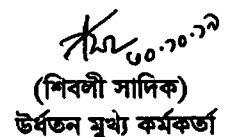 ৩০.১০.১৯
(শিবলী সাদিক)
উর্ধতন মুখ্য কর্মকর্তা